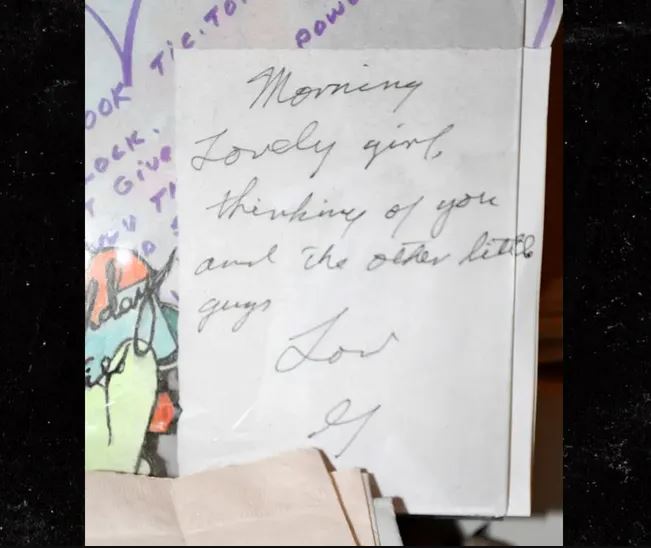 TIC.TO
POW
OOK
LOCK.
GIVE
Morning
Lovely girl,
thinking of you
and the other little
guys
Lov
G